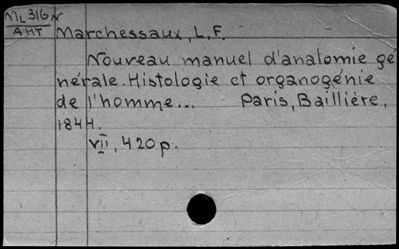 ML316N
AHT
Marchessaux, L.F.
Nouveau manuel d'anatomie gé
nérale. Histologie et organogénie
de l'homme... Paris, Baillière,
1844.
VII, 420 p.